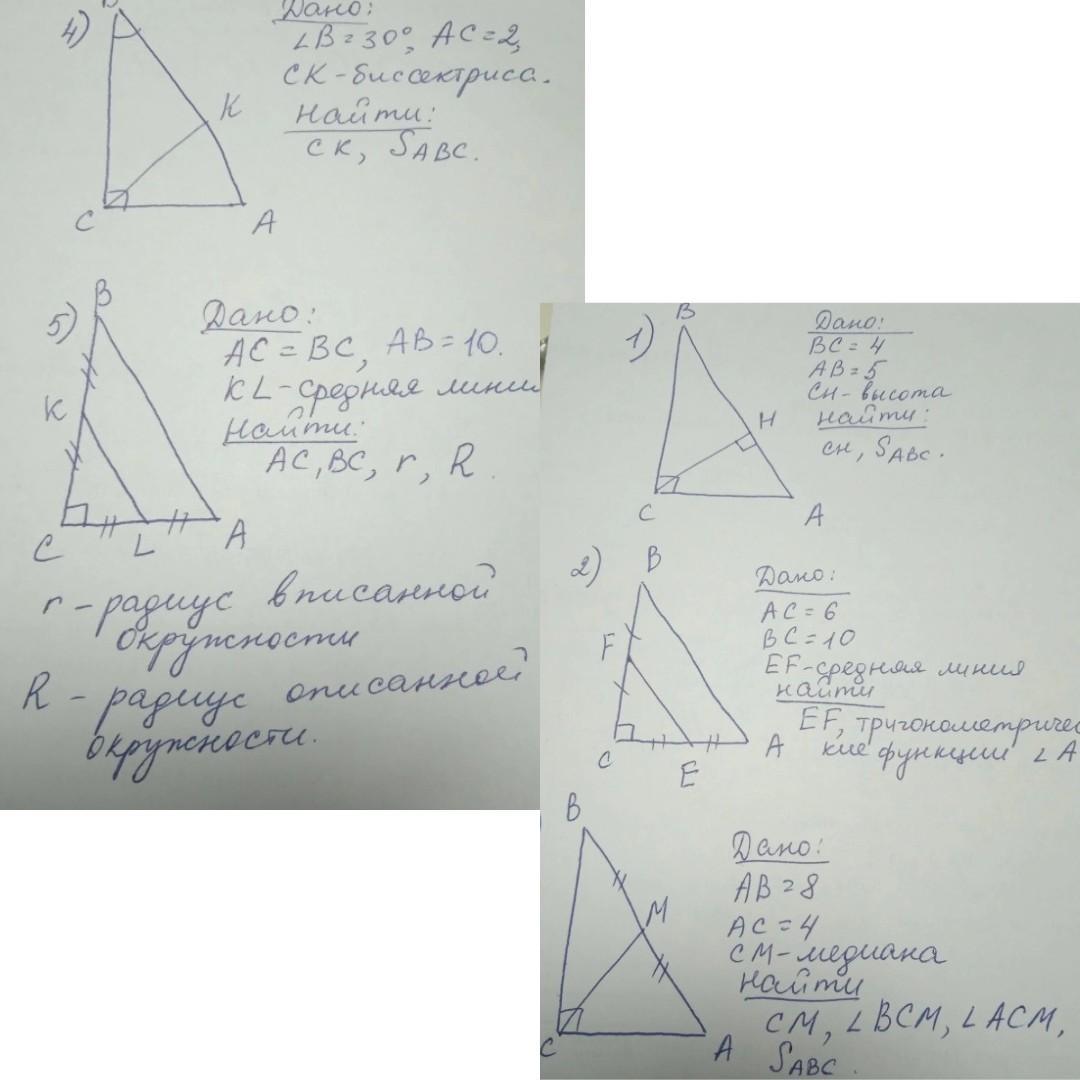 4)
Дано:
∠B=30°, AC=2,
CK-биссектриса.
Найти:
CK, S_ABC.
K
C
A
5)
B
K
C
L
A
Дано:
AC=BC, AB=10.
KL-средняя лини
Найти:
AC, BC, r, R.
r-радиус вписанной
окружности
R - радиус описанной
окружности.
1)
B
H
C
A
Дано:
BC=4
AB=5
CH-высота
Найти:
CH, S_ABC.
2)
B
F
C
E
A
Дано:
AC=6
BC=10
EF-средняя линия
найти
EF, тригонометричес
кие функции ∠A
B
M
C
A
Дано:
AB=8
AC=4
CM-медиана
Найти
CM, ∠BCM, ∠ACM,
S_ABC.